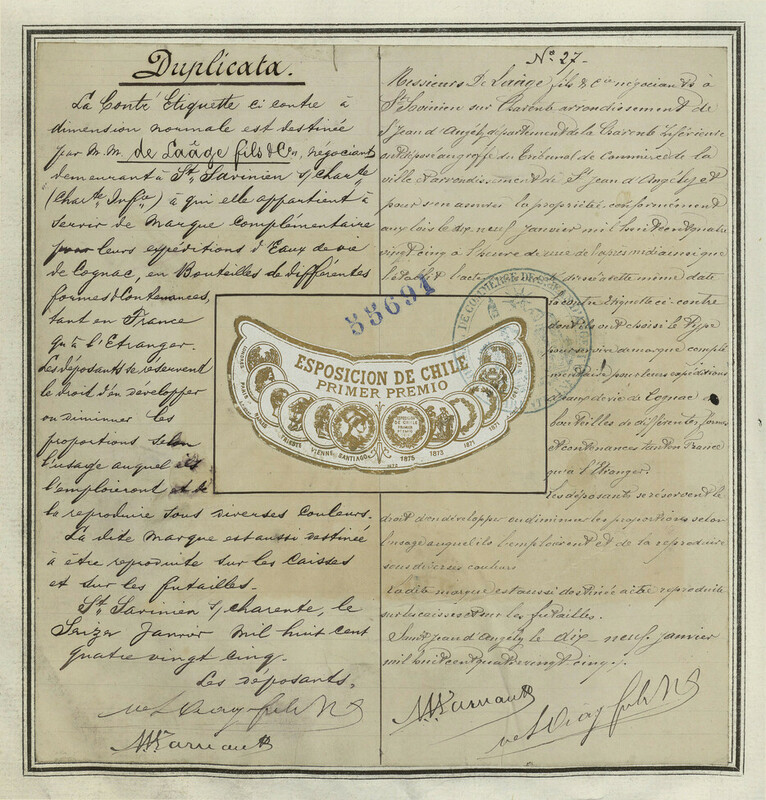 Duplicata.
La Contre Etiquette ci contre à
dimension normale est destinée
par M.M. de Laâge fils & Cie, négociants
demeurant à St. Savinien s/ Charte
(Charte Infre) à qui elle appartient à
servir de Marque complémentaire
pour leurs expéditions d'Eaux de vie
de Cognac, en Bouteilles de différentes
formes & Contenances,
tant en France
qu'à l'Etranger.
Les déposants se réservent
le droit d'en développer
ou diminuer les
proportions selon
l'usage auquel ils
l'emploieront et de
la reproduire sous diverses couleurs.
La dite Marque est aussi destinée
à être reproduite sur les caisses
et sur les futailles.
St. Savinien s/ charente, le
Seize Janvier Mil huit cent
quatre vingt cinq.
Les déposants,
No. 27.
Messieurs De Laâge fils & Cie négociants à
St Savinien sur Charente arrondissement de
St Jean d'Angély département de la Charente inférieure
ont déposé au greffe du Tribunal de Commerce de la
ville et arrondissement de St Jean d'Angély et
pour s'en assurer la propriété conformément
aux lois le dix neuf Janvier mil huit cent quatre
vingt cinq à l'heure de une de l'après midi ainsi que
le à cette même date
la contre Etiquette ci-contre
dont ils ont choisi le Type
pour servir de marque complé
mentaire pour leurs expéditions
d'eaux de vie de Cognac en
bouteilles de différentes formes
et contenances tant en France
qu'à l'Etranger.
Les déposants se réservent le
droit d'en développer ou diminuer les proportions selon
l'usage auquel ils l'emploieront et de la reproduire
sous diverses couleurs
La dite marque est aussi destinée à être reproduite
sur les caisses et sur les futailles.
Saint Jean d'Angély le dix-neuf janvier
mil huit cent quatre vingt cinq.
55691
ESPOSICION DE CHILE
PRIMER PREMIO
VIENNE SANTIAGO 1875 1873 1871